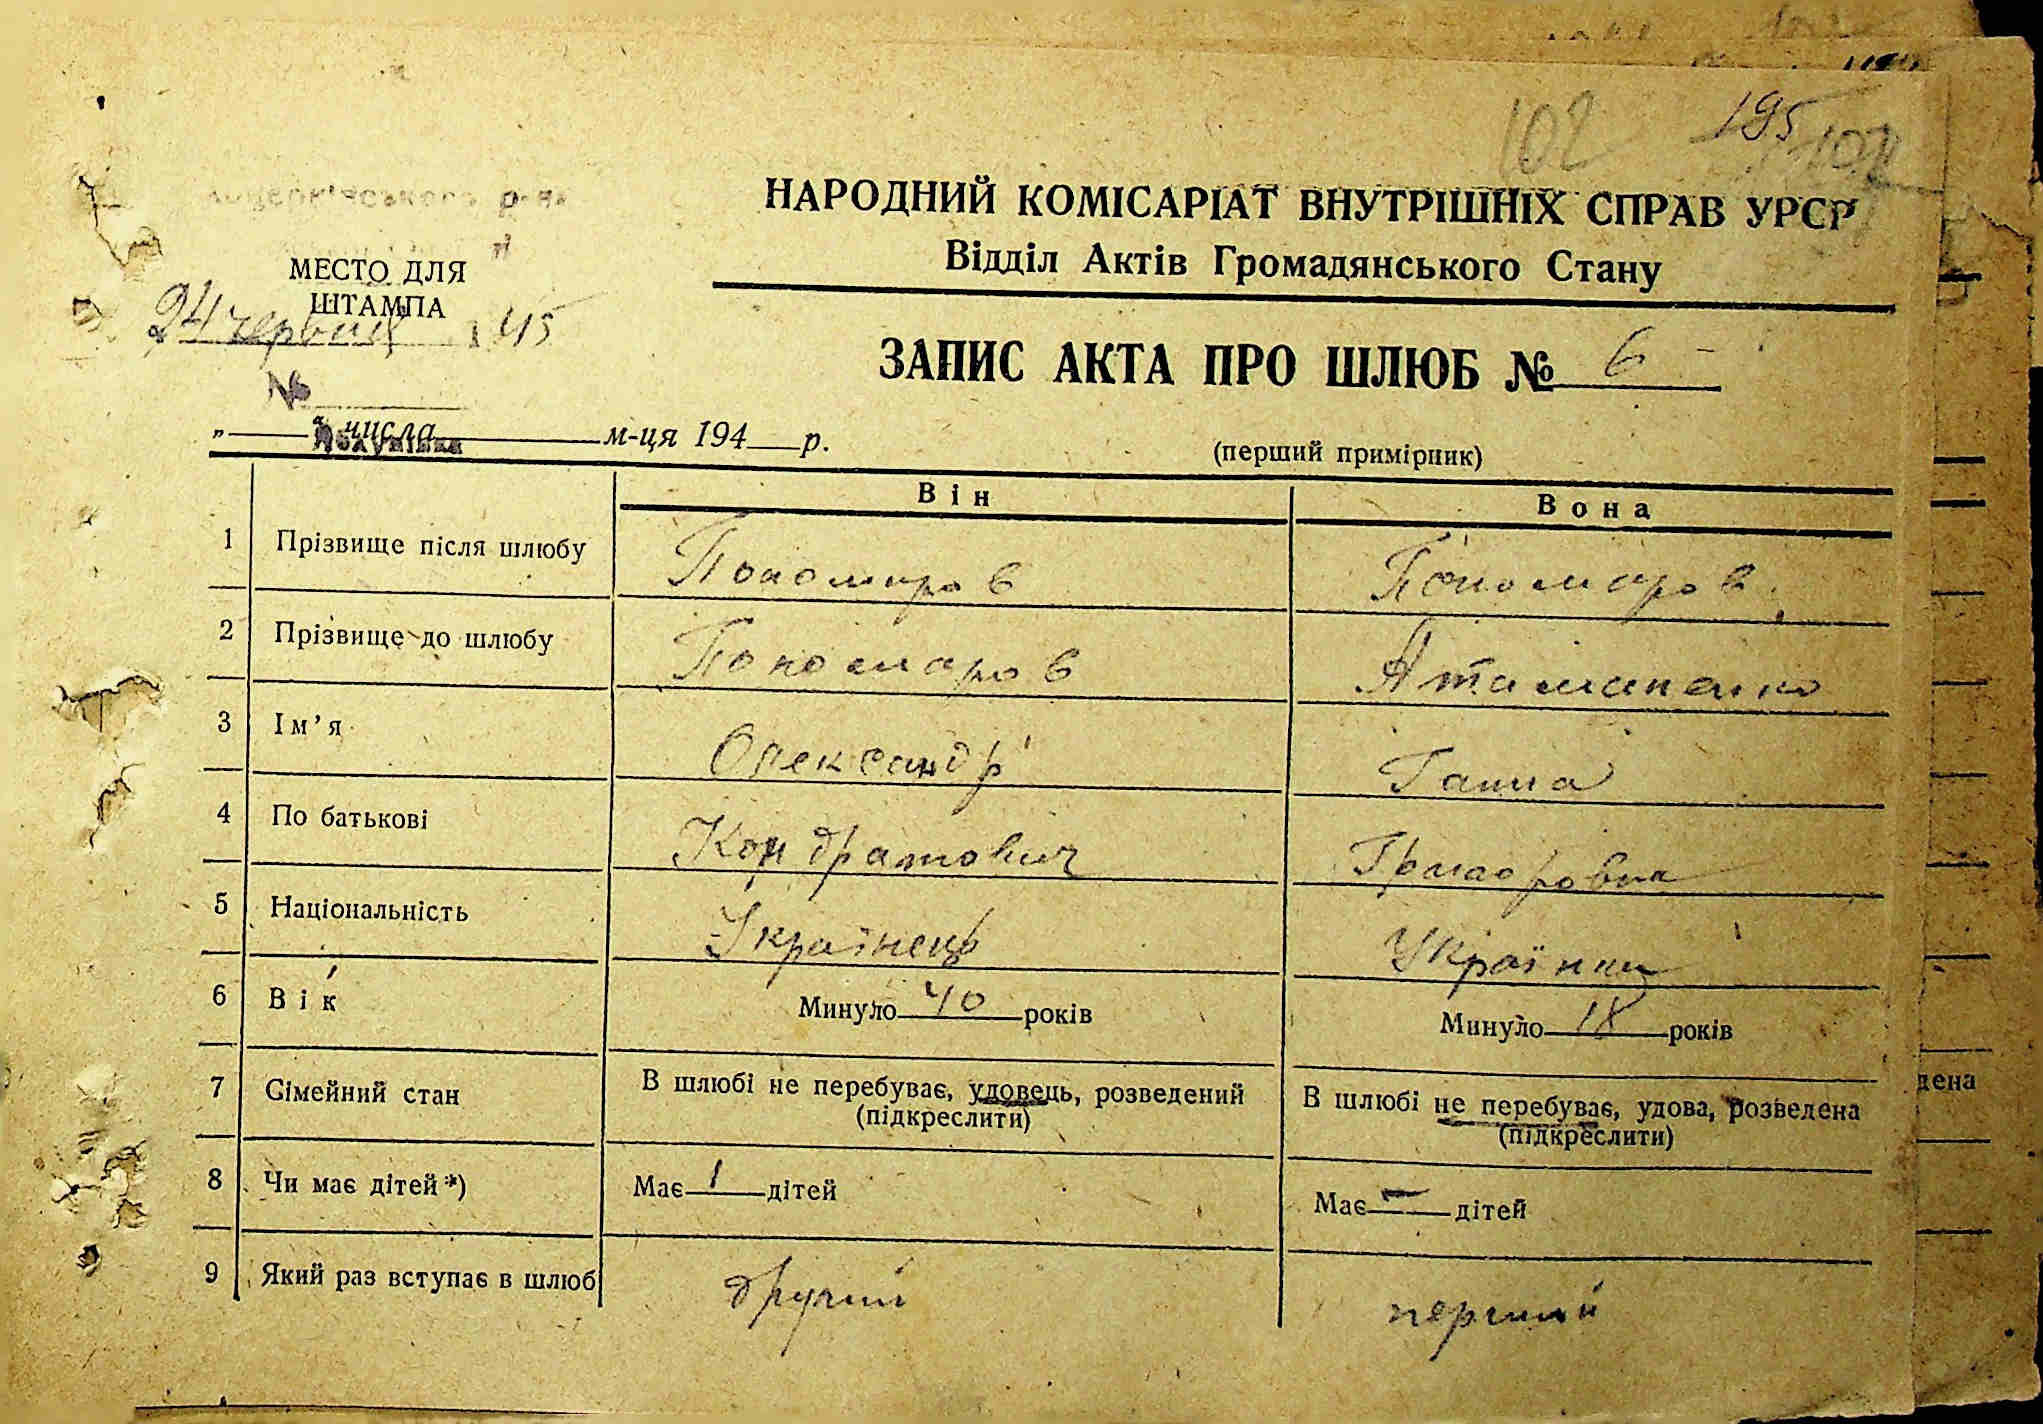 102 195
НАРОДНИЙ КОМІСАРІАТ ВНУТРІШНІХ СПРАВ УРСР
Відділ Актів Громадянського Стану
МЕСТО ДЛЯ
ШТАМПА
24 червня 145
ЗАПИС АКТА ПРО ШЛЮБ № 6
№
„ числа м-ця 194 р.
(перший примірник)
Він Вона
1 Прізвище після шлюбу Пономаров Пономаров
2 Прізвище до шлюбу Пономаров Атаманенко
3 Ім'я Олександр Ганна
4 По батькові Кондратович
5 Національність Українець Українка
6 Вік Минуло 40 років Минуло 18 років
7 Сімейний стан В шлюбі не перебуває, удовець, розведений В шлюбі не перебуває, удова, розведена
(підкреслити) (підкреслити)
8 Чи має дітей*) Має 1 дітей Має — дітей
9 Який раз вступає в шлюб другий перший
дена